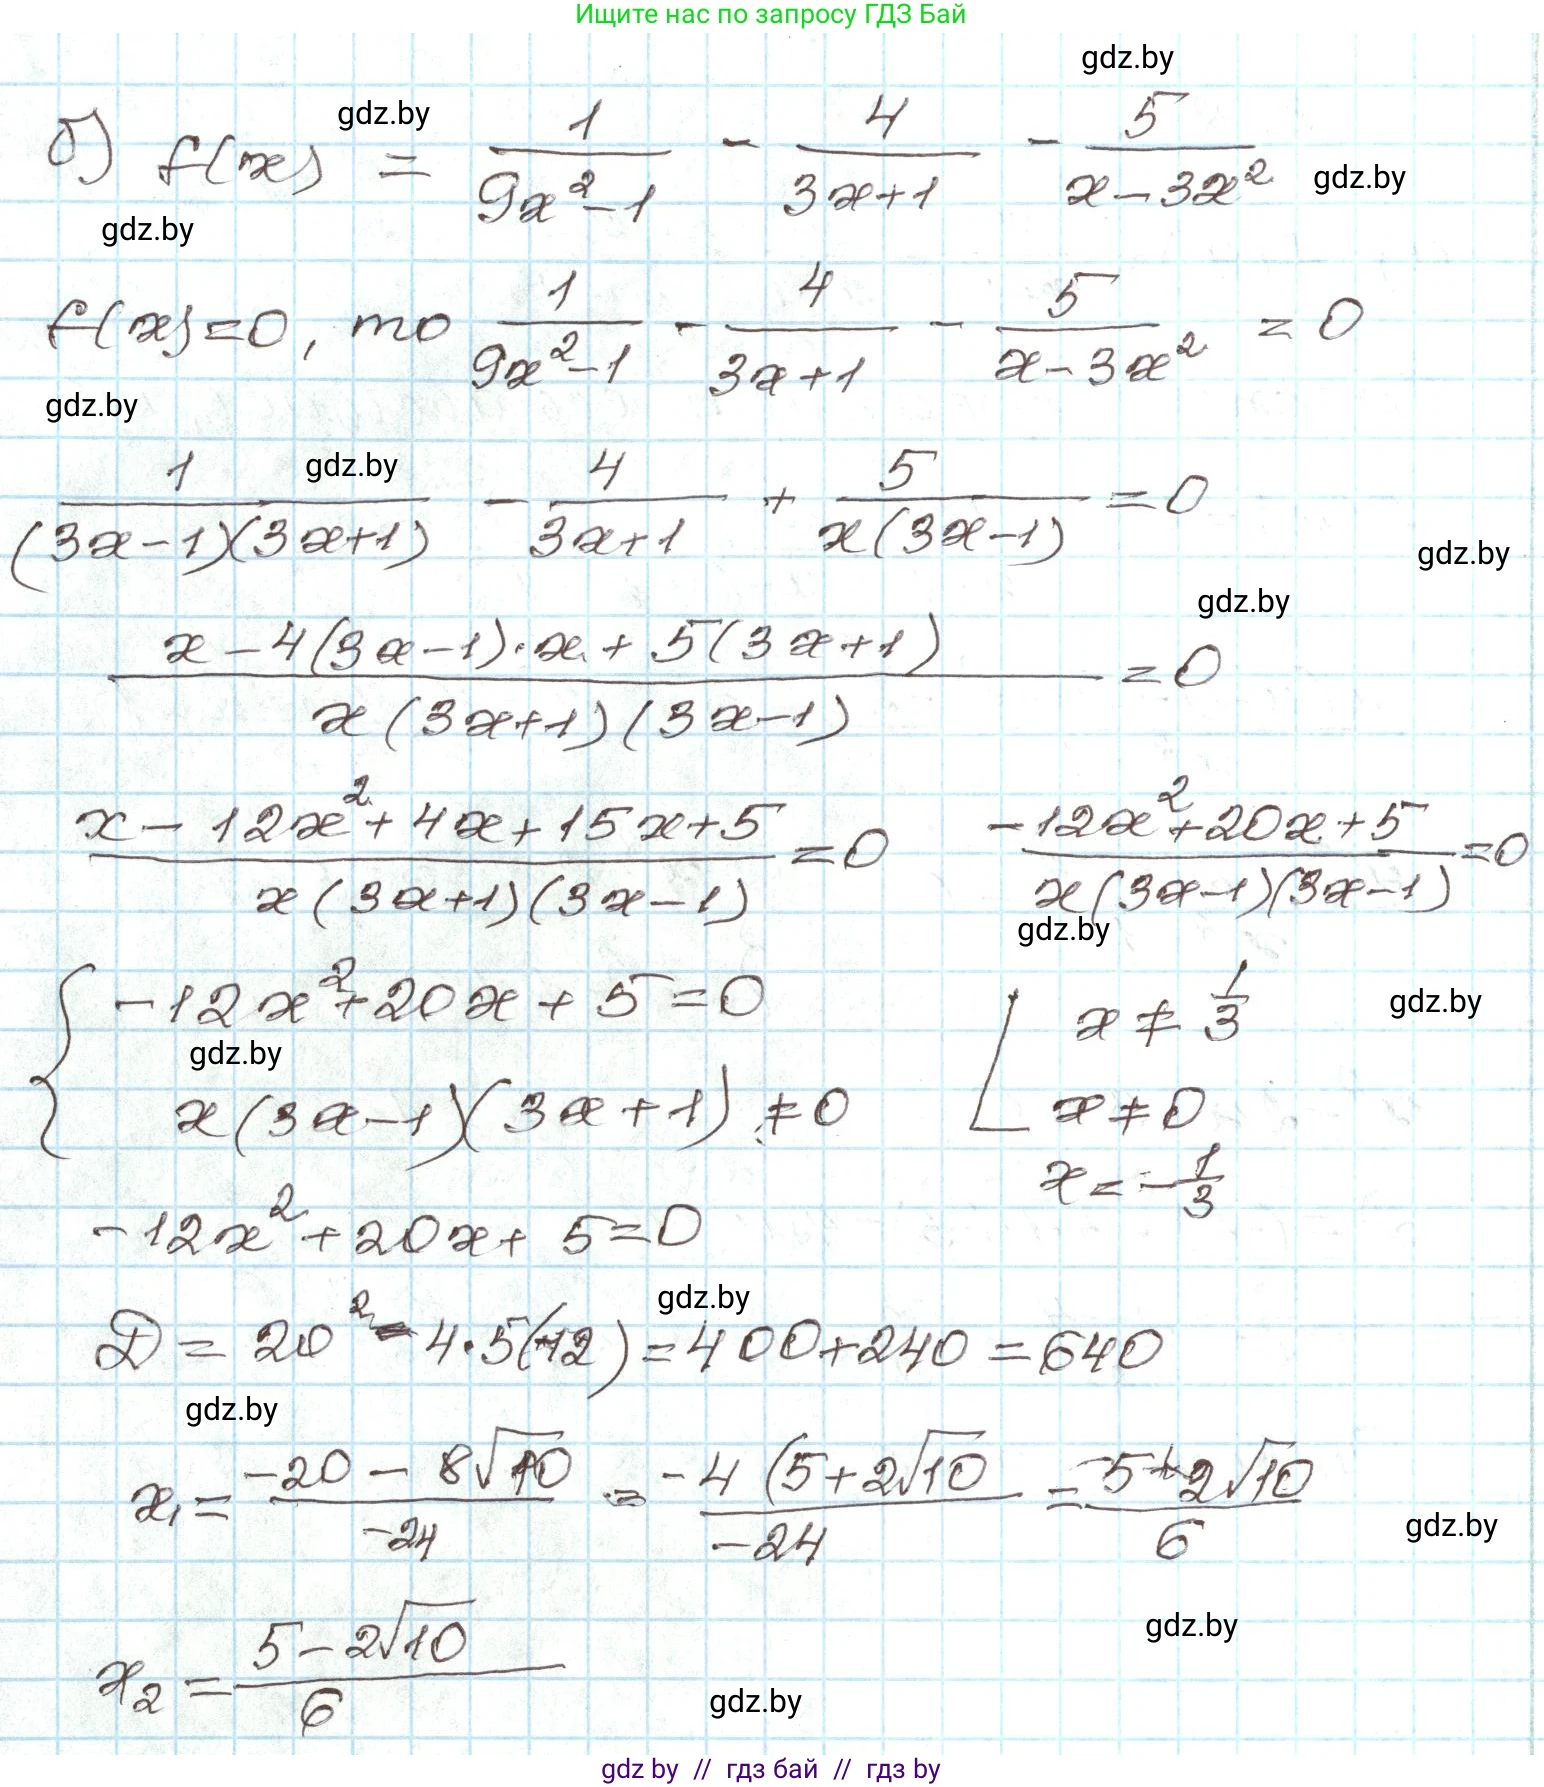 Ищите нас по запросу ГДЗ Бай
gdz.by
gdz.by
б) f(x) = 1/(9x²-1) - 4/(3x+1) - 5/(x-3x²)
gdz.by
gdz.by
f(x)=0, то 1/(9x²-1) - 4/(3x+1) - 5/(x-3x²) = 0
gdz.by
gdz.by
1/((3x-1)(3x+1)) - 4/(3x+1) + 5/(x(3x-1)) = 0
gdz.by
gdz.by
(x-4(3x-1)·x+5(3x+1))/(x(3x+1)(3x-1)) = 0
(x-12x²+4x+15x+5)/(x(3x+1)(3x-1)) = 0 (-12x²+20x+5)/(x(3x-1)(3x-1)) = 0
gdz.by
{ -12x²+20x+5=0 [ x ≠ 1/3
gdz.by
gdz.by
x(3x-1)(3x+1) ≠ 0 x ≠ 0
x = -1/3
-12x²+20x+5=0
gdz.by
D = 20² - 4·5(-12) = 400+240 = 640
gdz.by
x₁ = (-20 - 8√10)/(-24) = (-4(5+2√10)/(-24) = (-5+2√10)/6
gdz.by
gdz.by
x₂ = (5-2√10)/6
gdz.by
gdz by // гдз бай // гдз by